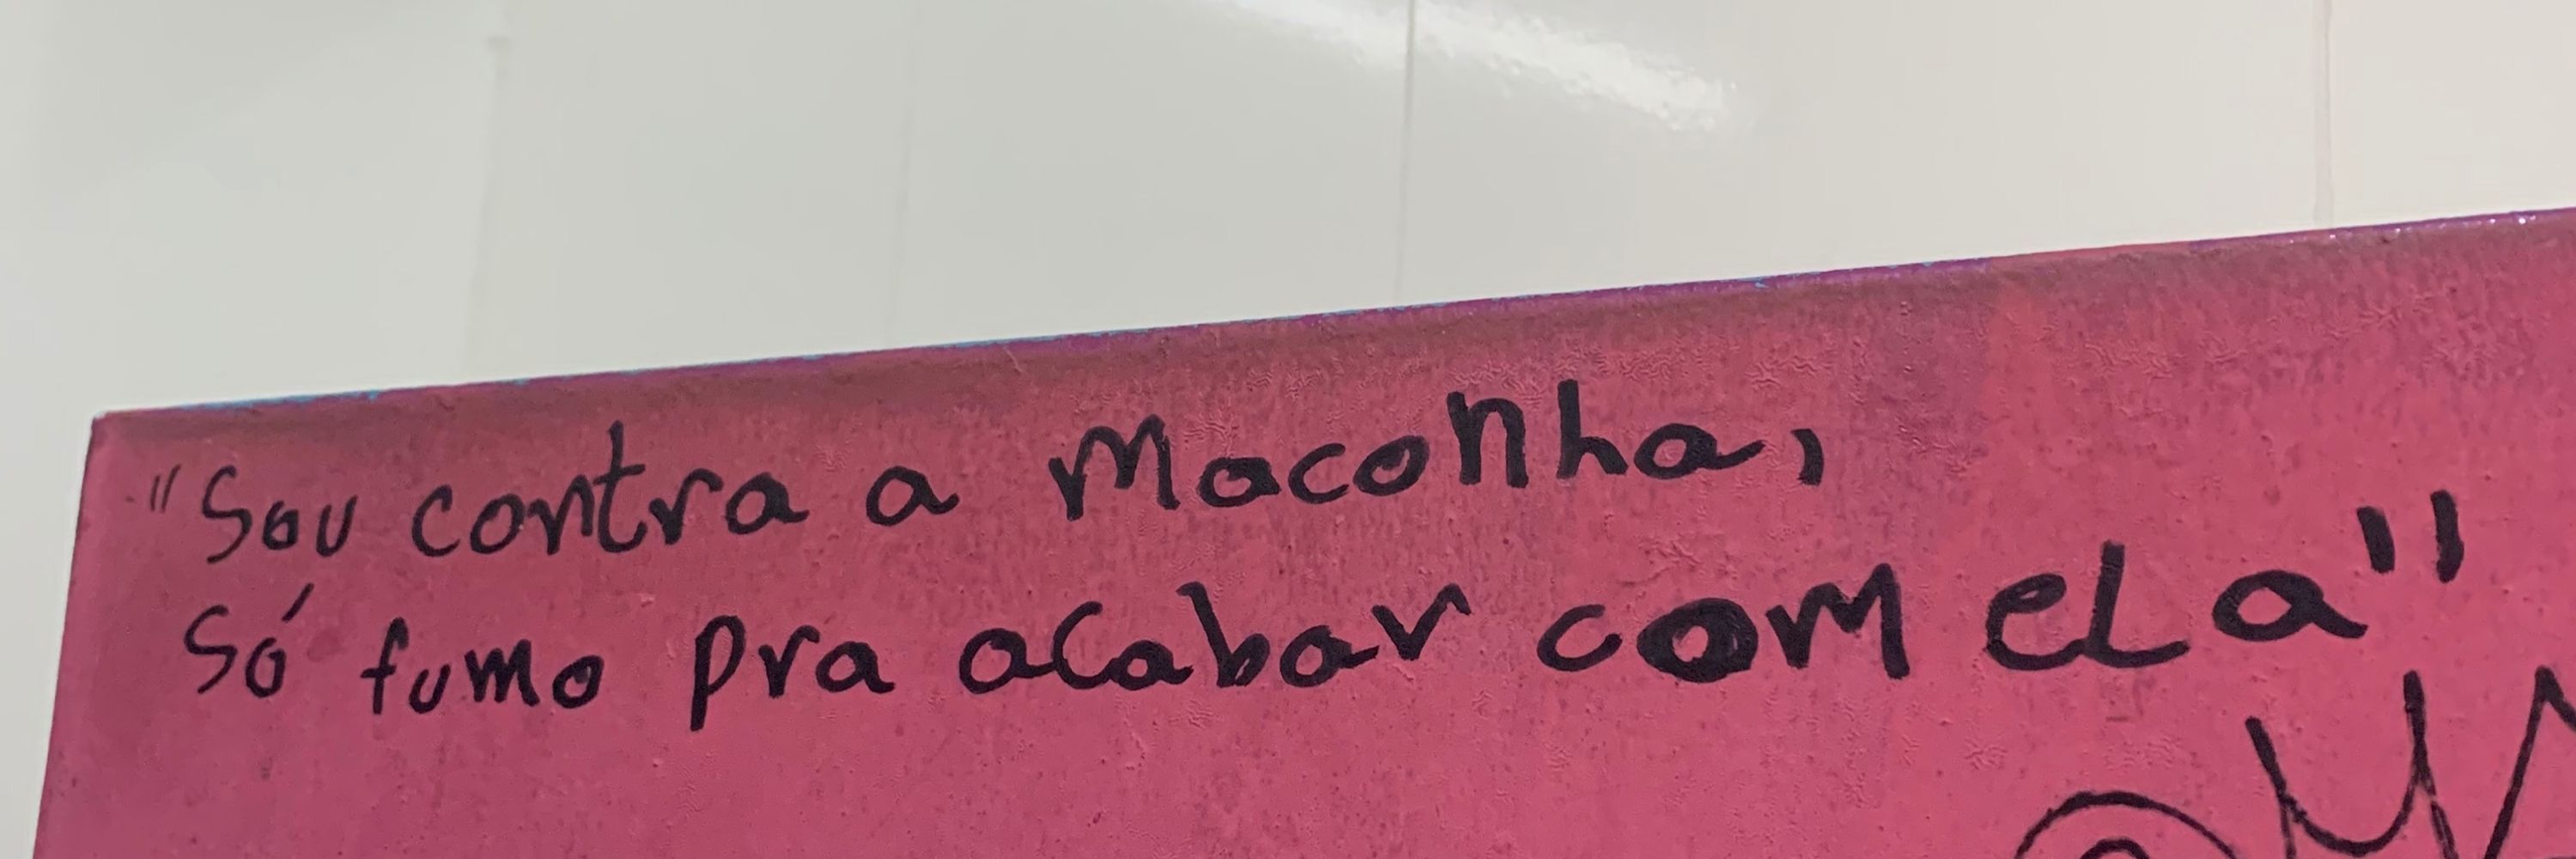 "Sou contra a Maconha,
Só fumo pra acabar com ela"